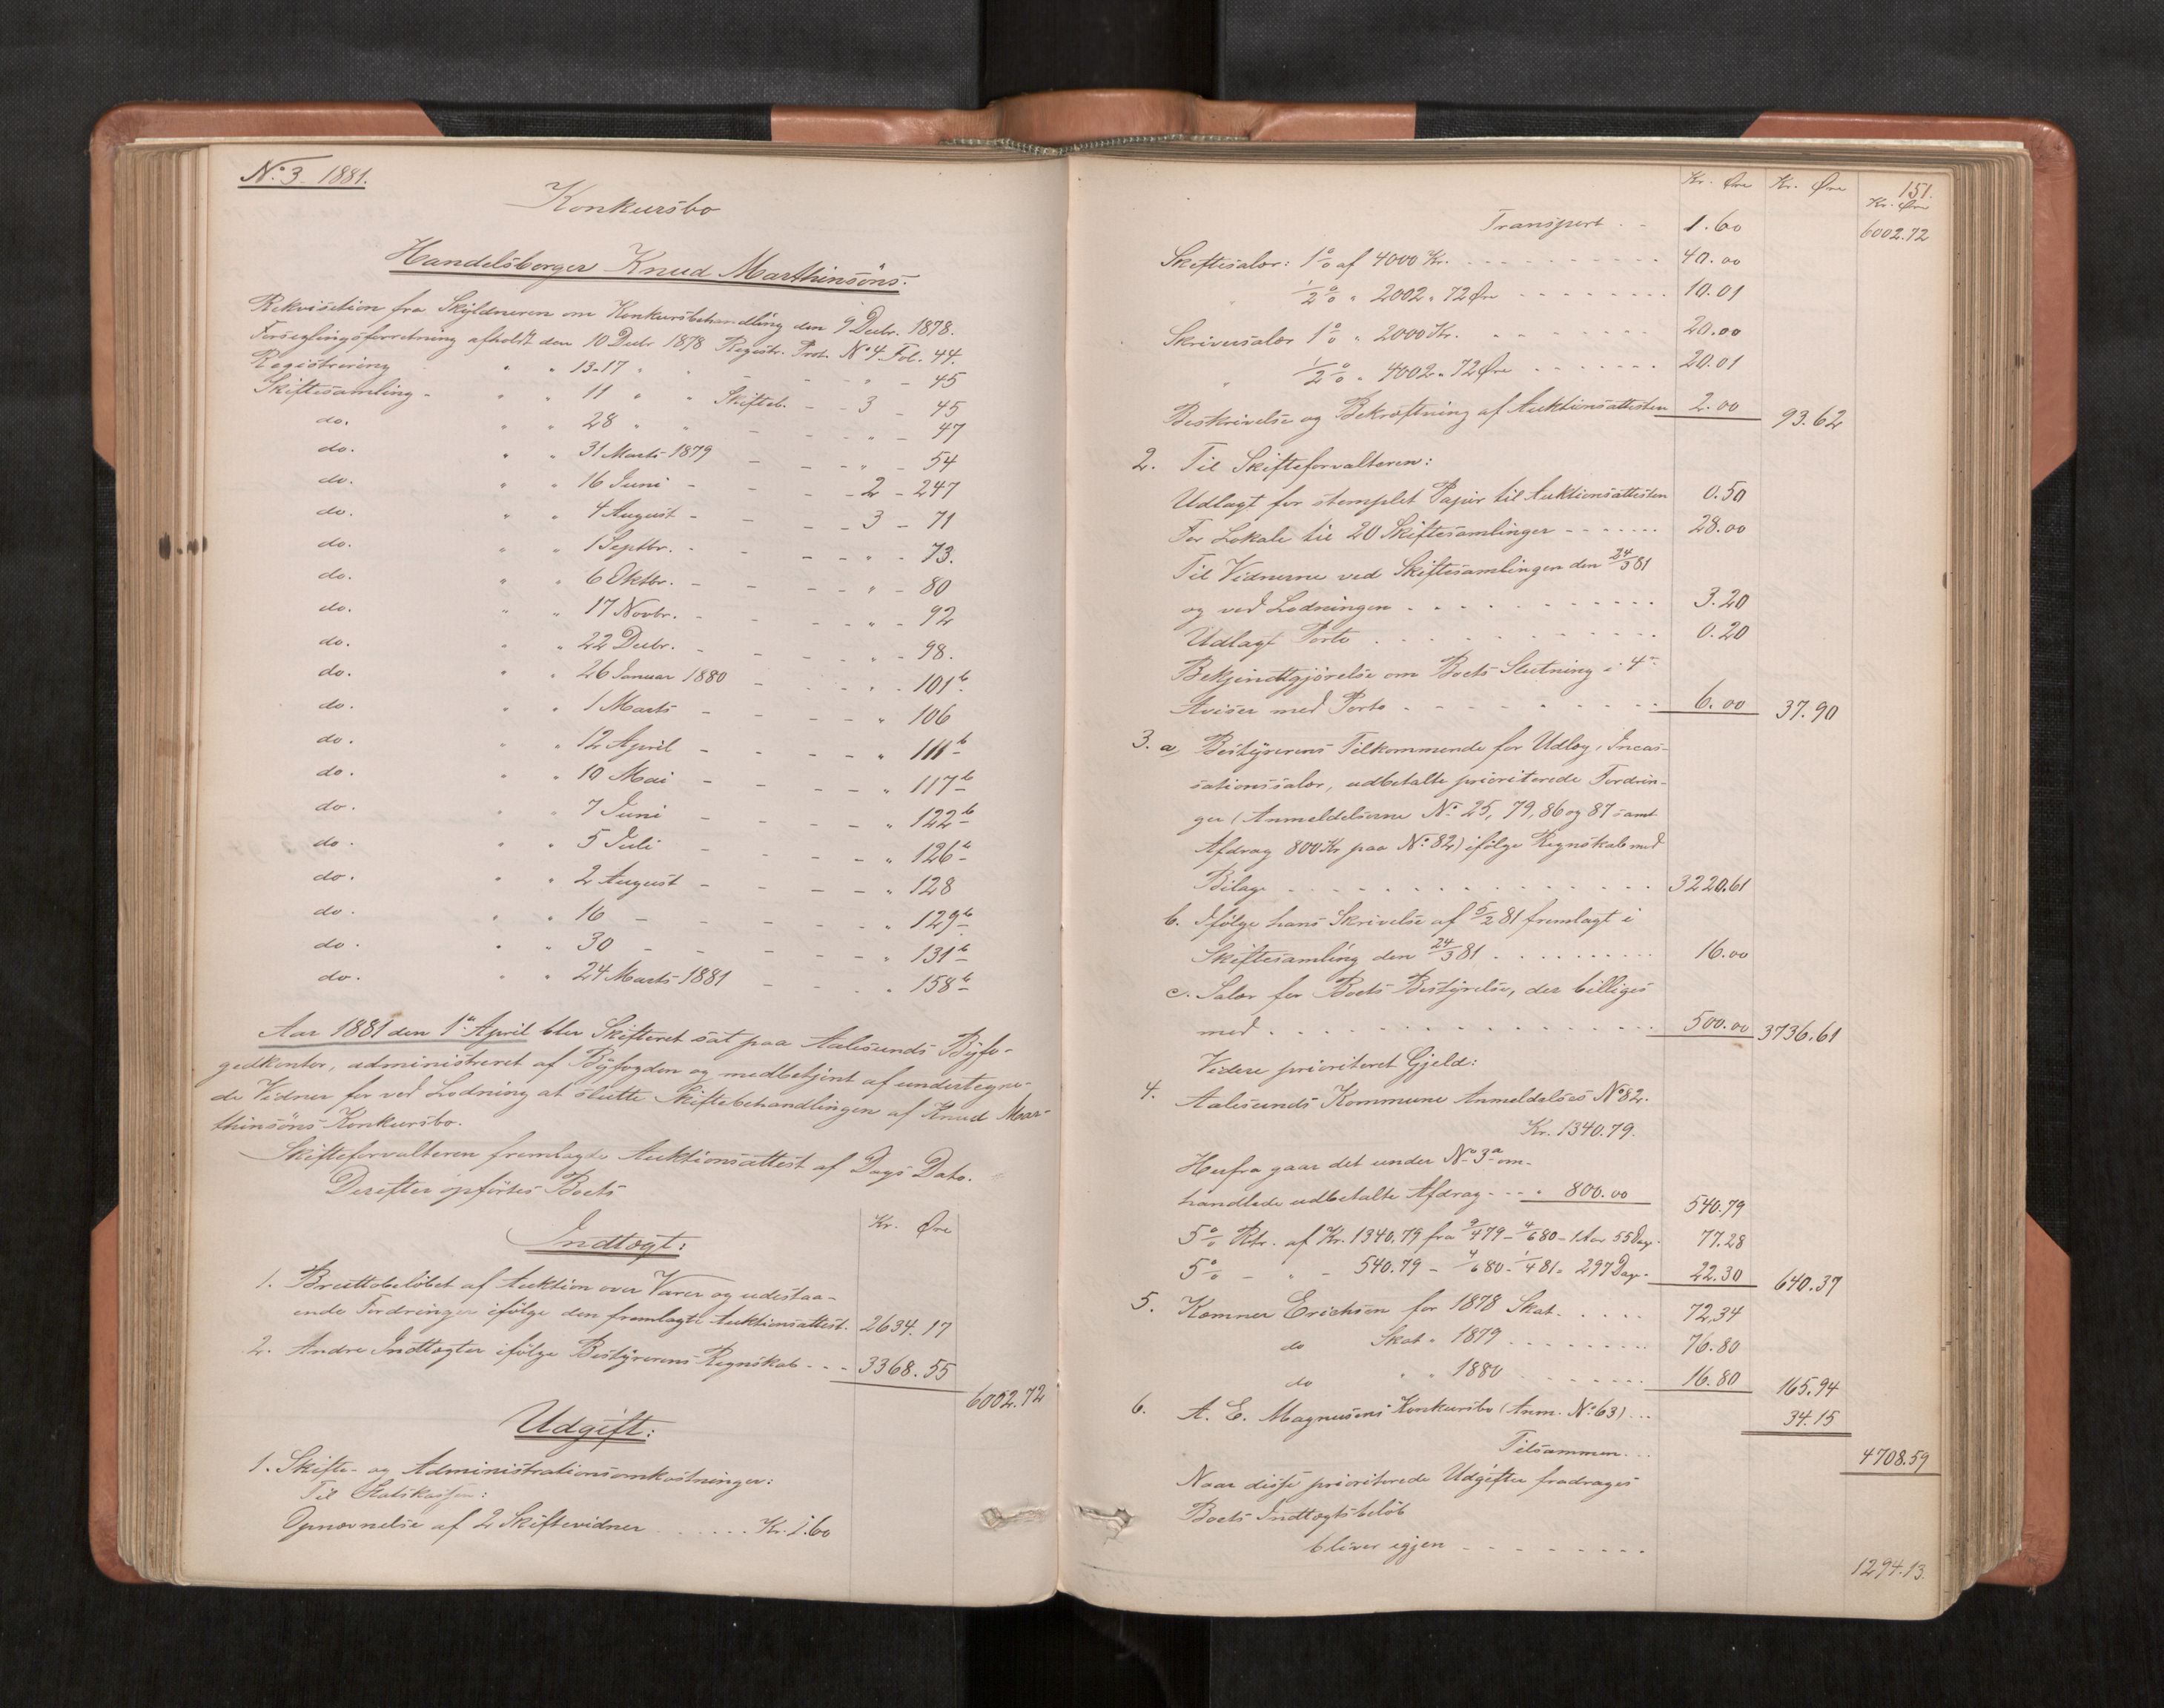 No. 3 1881.
Konkursbo
Handelsborger Knud Marthinsöns.
Rekvisition fra Skyldneren om Konkursbehandling den 9 Decbr. 1878.
Forseglingsforretning afholdt den 10 Decbr 1878 Registr. Prot. No 4. Fol. 44.
Registrering " " 13-17 " " - - " - 45
Skiftesamling - " " 11 " " Skifteb. - - 3 - 45
do. " " 28 " " - - - " - 47
do. " " 31 Marts 1879 - - - " - 54
do. " " 16 Juni - - - 2 - 247
do. " " 4 August - - - - 3 - 71
do. " " 1 Septbr. - - - - " - 73.
do. " " 6 Oktbr. - - - - " - 80
do. " " 17 Novbr. - - - - " - 92
do. " " 22 Decbr. - - - - " - 98.
do. " " 26 Januar 1880 - - - " - 101b
do. " " 1 Marts - - - - " 106
do. " " 12 April - - - - " 111b
do. " " 10 Mai - - - - " 117b
do. " " 7 Juni - - - - " 122b
do. " " 5 Juli - - - - " 126b
do. " " 2 August - - - - " 128
do. " " 16 - - - - - " 129b
do. " " 30 - - - - - " 131b
do. " " 24 Marts 1881 - - - " 158b
Aar 1881 den 1ste April blev Skifteret sat paa Aalesunds Byfo-
gedkontor, administreret af Byfogden og medbetjent af undertegne-
de Vidner for ved Lodning at slutte Skiftebehandlingen af Knud Mar-
thinsöns Konkursbo.
Skifteforvalteren fremlagde Auktionsattest af Dags Dato.
Derefter opförtes Boets
Kr. Øre
Indtægt:
1. Bruttobelöbet af Auktion over Varer og udestaa-
ende Fordringer ifölge den fremlagte Auktionsattest. 2634.17
2. Andre Indtægter ifölge Bestyrerens Regnskab - - - 3368.55
6002.72
Udgift:
1. Skifte- og Administrationsomkostninger:
Til Statskassen:
Opnævnelse af 2 Skiftevidner . . . . . . Kr. 1.60
151.
Kr. Øre Kr. Øre Kr. Øre
Transport . - 1.60 6002.72
Skiftesalær: 1 % af 4000 Kr. . . . . 40.00
" 1/2 % " 2002 " 72 Øre - - - - 10.01
Skriversalær 1 % " 2000 Kr. - - - 20.00
" 1/2 % " 4002 " 72 Øre . . . . 20.01
Beskrivelse og Bekræftning af Auktionsattesten 2.00 93.62
2. Til Skifteforvalteren:
Udlagt for stemplet Papir til Auktionsattesten 0.50
For Lokale til 20 Skiftesamlinger - - - - 28.00
Til Vidnerne ved Skiftesamlingen den 24/3 81
og ved Lodningen . . . . . . 3.20
Udlagt Porto . . . . . . 0.20
Bekjendtgjörelse om Boets Slutning i 4re
Aviser med Porto . . . . . . 6.00 37.90
3. a, Bestyrerens Tilkommende for Udlæg, Incas-
sationssalær, udbetalte prioriterede Fordrin-
ger (Anmeldelserne No. 25, 79, 86 og 87 samt
Afdrag 800 Kr paa No. 82) ifölge Regnskab med
Bilage . . . . . . 3220.61
b. Ifölge hans Skrivelse af 5/2 81 fremlagt i
Skiftesamling den 24/3 81 . . . . . . 16.00
c. Salær for Boets Bestyrelse, der billiges
med . . . . . . 500.00 3736.61
Videre prioriteret Gjeld:
4. Aalesunds Kommune Anmeldelses No 82.
Kr. 1340.79.
Herfra gaar det under No 3a om-
handlede udbetalte Afdrag - - - " 800.00 540.79
5 % Rtr. af Kr. 1340.79 fra 9/4 79 - 4/6 80 - 1 Aar 55 Dage. 77.28
5 % - " - 540.79 - 4/6 80 - 1/4 81 = 297 Dage - 22.30 640.37
5. Kæmner Erichsen for 1878 Skat . . . . . 72.34
do Skat " 1879 . . . . . . 76.80
do " " 1880 . . . . . . 16.80 165.94
6. A. E. Magnusens Konkursbo (Anm. No. 63) . . . 34.15
Tilsammen . . . 4708.59
Naar disse prioriterede Udgifter fradrages
Boets Indtægtsbelöb
bliver igjen - - - - - - 1294.13.